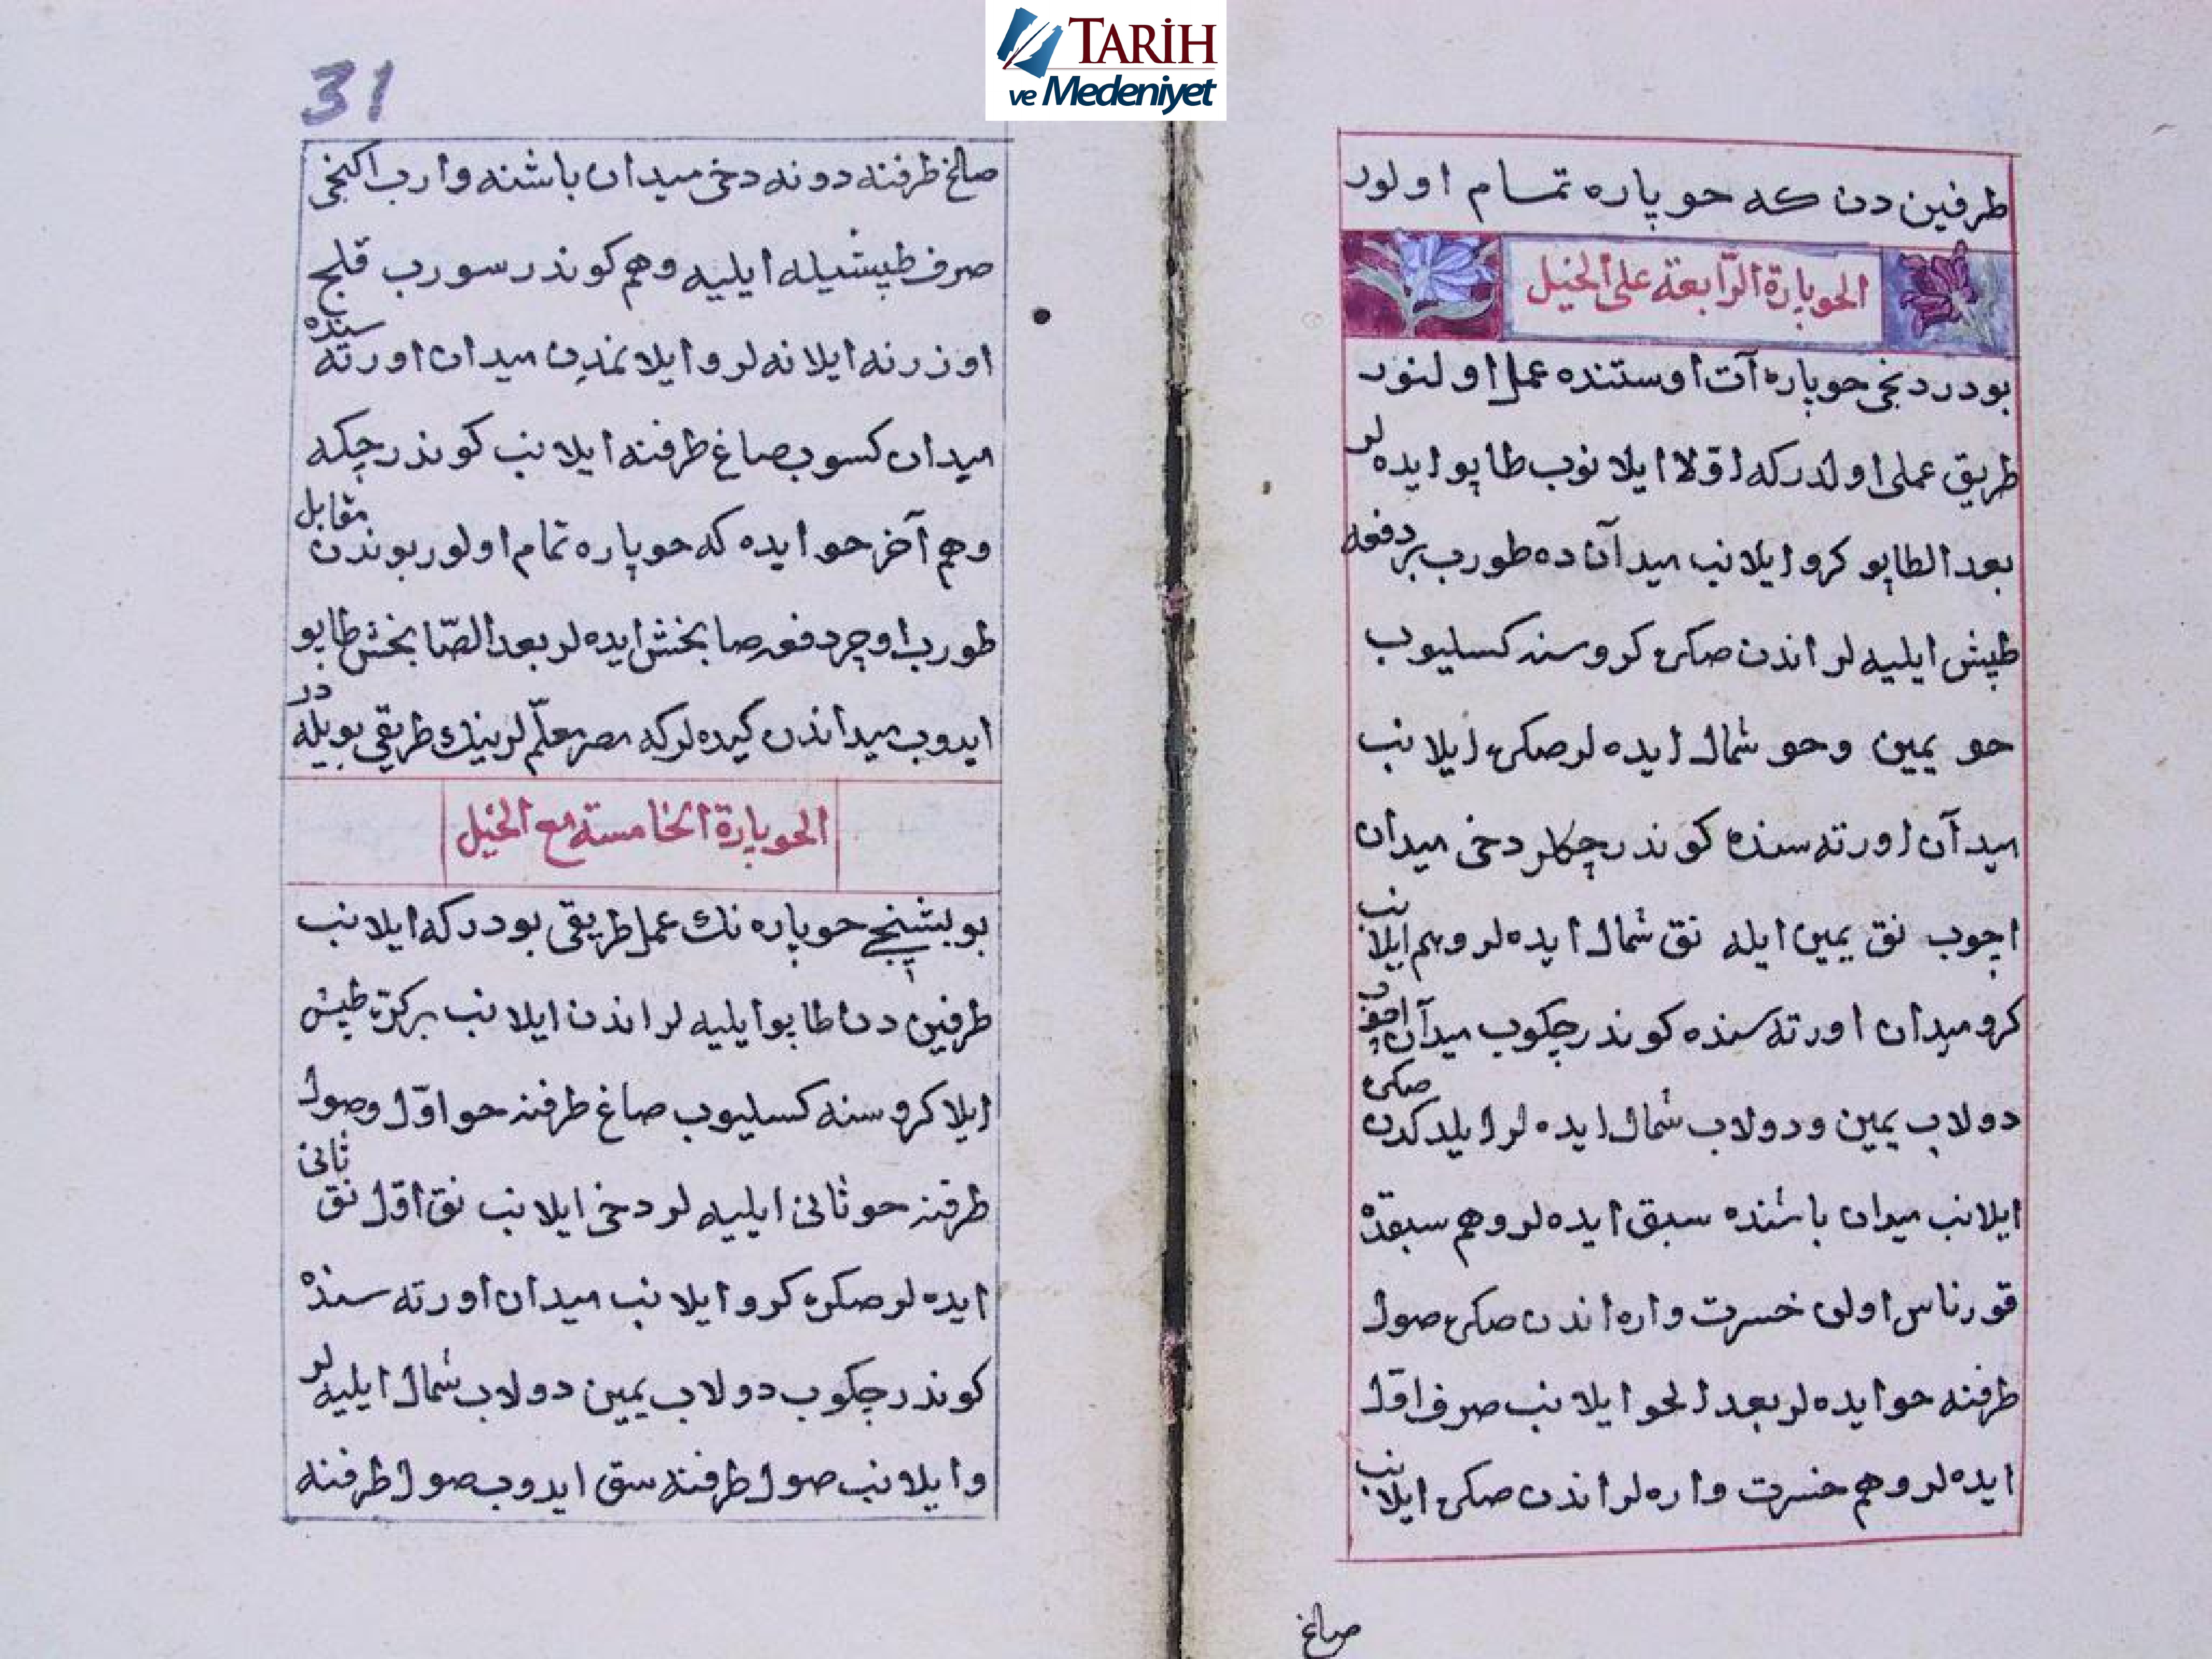 TARİH
ve Medeniyet
طرفین دن که حو پاره تمام اولور
الحوپارة الرّابعة علی الخیل
بو دردنجی حوپاره آت اوستنده عمل اولنور
طریق عملی اولدر که اوّلا ایلانوب طاپو ایده لر
بعد الطاپو کرو ایلانب میدآن ده طورب بر دفعه
طپش ایلیه لر اندن صکره کروسنه کسلیوب
حو یمین وحو شمال ایده لر صکره ایلانب
میدآن اورته سنده کوندر چکلر دخی میدان
اچوب نق یمین ایله نق شمال ایده لر وهم ایلانب
کرو میدان اورته سنده کوندر چکوب میدآن اچوب
دولاب یمین ودولاب شمال ایده لر ایلدکدن صکره
ایلانب میدان باشنده سبق ایده لر وهم سبقده
قورناس اولی خسرت واره اندن صکره صول
طرفنه حو ایده لر بعد الحو ایلانب صرف اوّل
ایده لر وهم خسرت واره لر اندن صکره ایلانب
صاغ
31
صاغ طرفنه دونه دخی میدان باشنه وارب اکنجی
صرف طپشیله ایلیه وهم کوندر سورب قلج
اوزرنه ایلانه لر و ایلانمدین میدان اورته سنده
میدان کسوب صاغ طرفنه ایلانب کوندر چکه
وهم آخر حو ایده که حوپاره تمام اولور بوندن مقابل
طورب اوچر دفعه صابخش ایده لر بعد الصّابخش طاپو
ایدوب میداندن کیده لر که مصر معلّم لرینك طریقی بویله در
الحوپارة الخامسة مع الخیل
بو بشنجی حوپاره نك عمل طریقی بودر که ایلانب
طرفین دن طاپو ایلیه لر اندن ایلانب بر کرّه طپش
ایلا کروسنه کسلیوب صاغ طرفنه حو اوّل وصول
طرفنه حو ثانی ایلیه لر دخی ایلانب نق اوّل نق ثانی
ایده لر صکره کرو ایلانب میدان اورته سنده
کوندر چکوب دولاب یمین دولاب شمال ایلیه لر
وایلانب صول طرفنه سبق ایدوب صول طرفنه